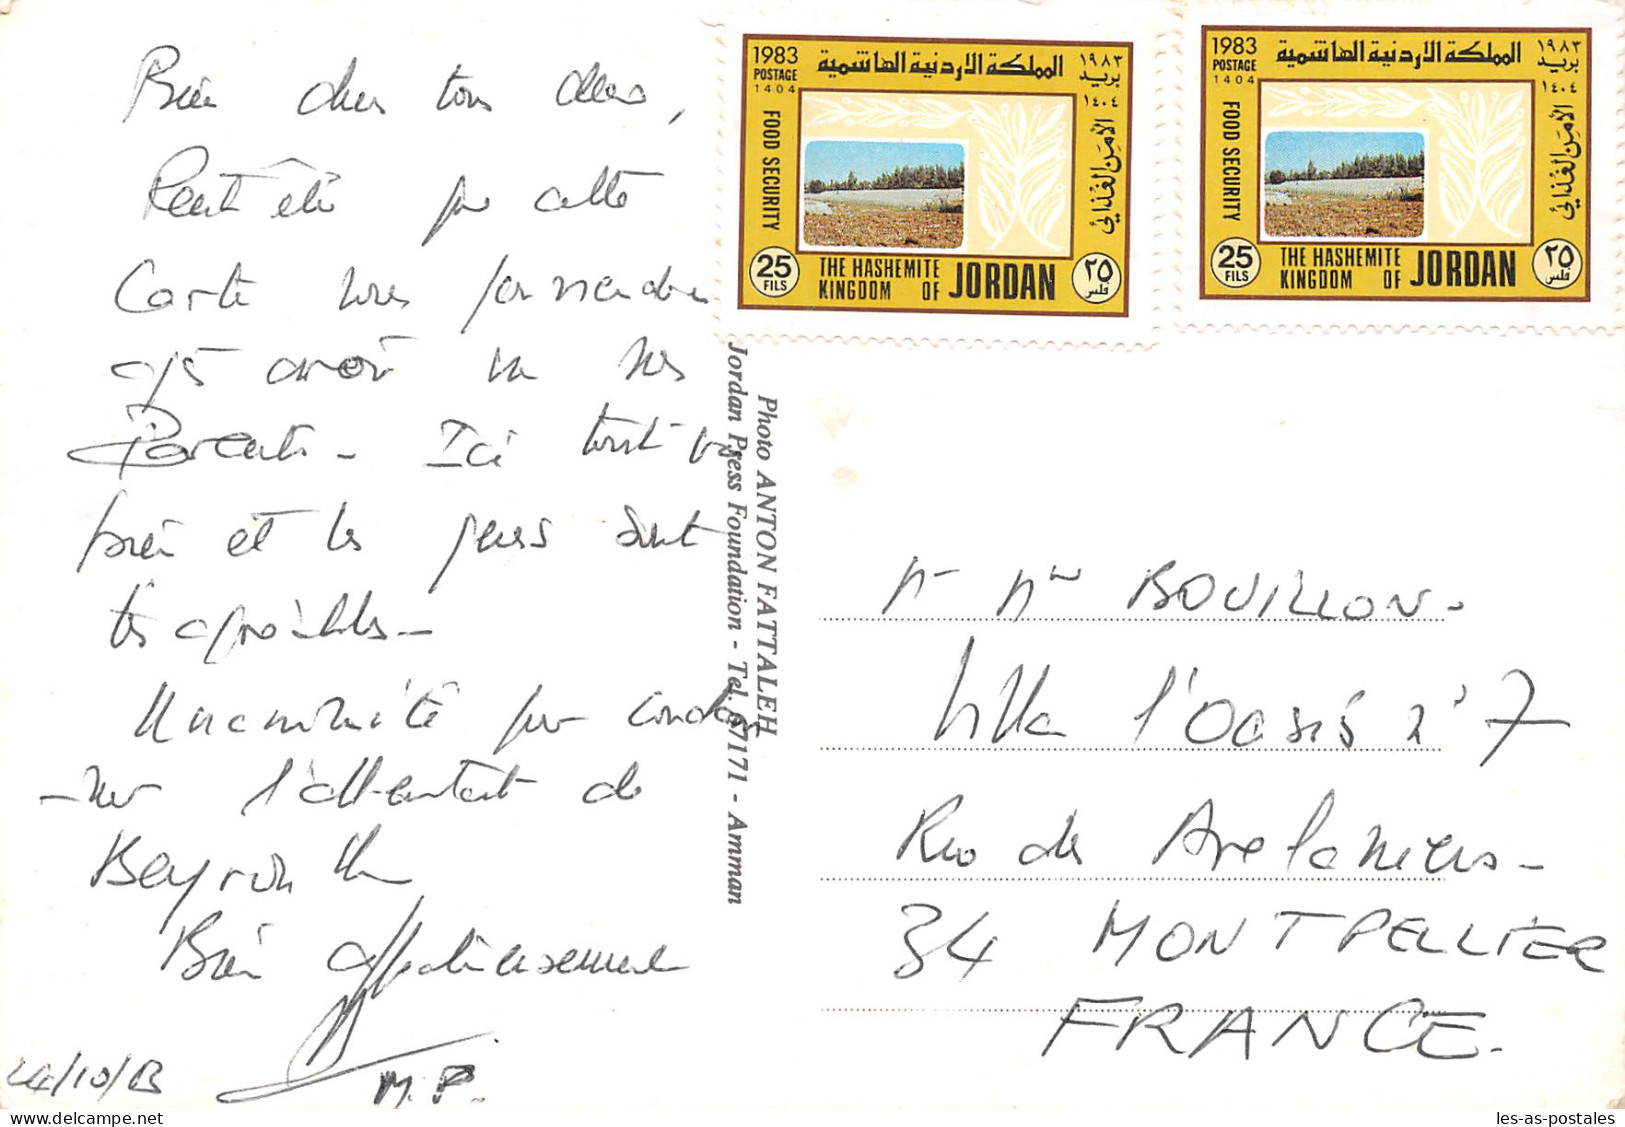 Bien chers tous deux,
Peut être que cette
Carte vous parviendra
après avoir vu vos
Parents - Ici tout va
bien et les gens sont
très agréables -
Unanimité pour condam
- ner l'attentat de
Beyrouth
Bien affectueusement
M.P.
24/10/83
1983
POSTAGE
1404
المملكة الاردنية الهاشمية
١٩٨٣
بريد
١٤٠٤
FOOD SECURITY
الأمن الغذائي
25
FILS
THE HASHEMITE
KINGDOM OF JORDAN
٢٥
فلس
1983
POSTAGE
1404
المملكة الاردنية الهاشمية
١٩٨٣
بريد
١٤٠٤
FOOD SECURITY
الأمن الغذائي
25
FILS
THE HASHEMITE
KINGDOM OF JORDAN
٢٥
فلس
Photo ANTON FATTALEH
Jordan Press Foundation - Tel. 67171 - Amman
Mr Mme BOUILLON.
Villa l'Oasis n° 7
Rue des
34 MONTPELLIER
FRANCE.
les-as-postales